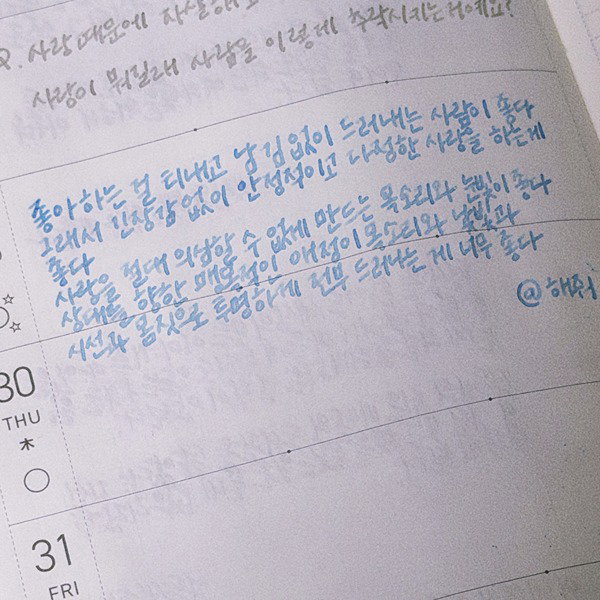 Q. 사랑 때문에 자살해도
사랑이 뭐길래 사람을 이렇게 추락시키는거예요?
좋아하는 걸 티내고 남김없이 드러내는 사람이 좋다
그래서 긴장감 없이 안정적이고 다정한 사랑을 하는게
좋다
사랑을 절대 의심할 수 없게 만드는 목소리와 눈빛이 좋다
상대를 향한 맹목적인 애정이 목소리와 낯빛과
시선과 몸짓으로 투명하게 전부 드러나는 게 너무 좋다
@해줘
30
THU
木
31
FRI